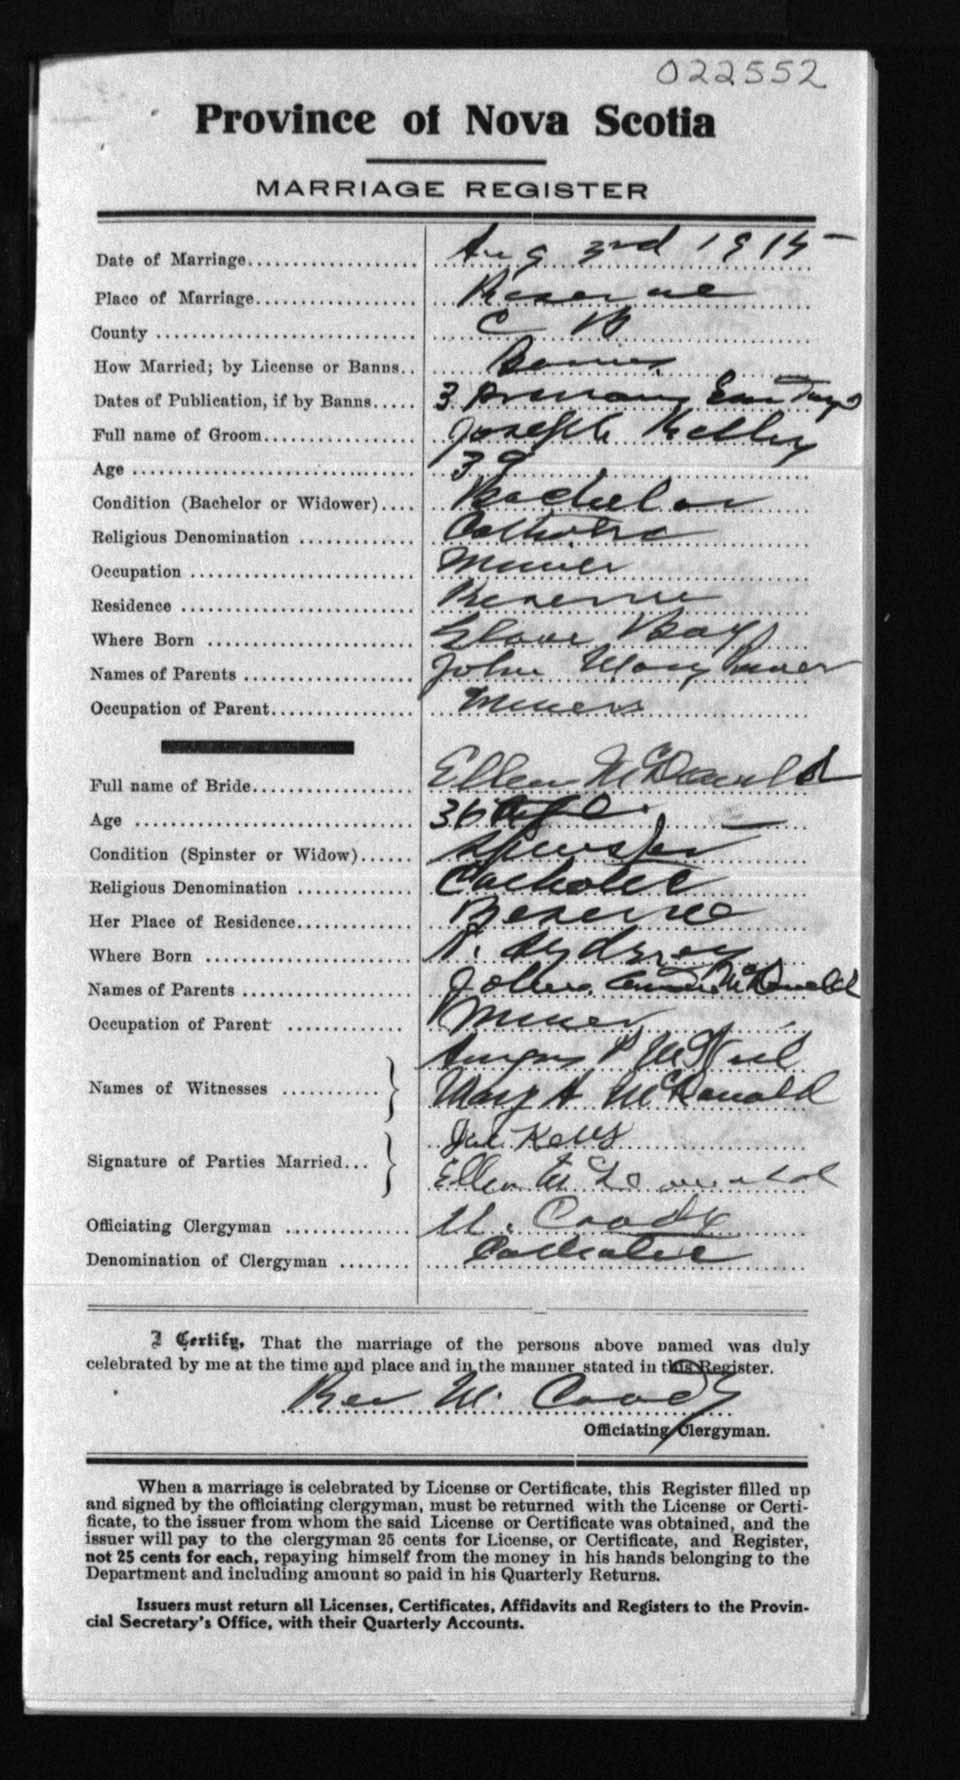 022552
Province of Nova Scotia
MARRIAGE REGISTER
Date of Marriage Aug 3rd 1915
Place of Marriage Reserve
County C B
How Married; by License or Banns Banns
Dates of Publication, if by Banns 3 Sundays
Full name of Groom Joseph Kelly
Age 39
Condition (Bachelor or Widower) Bachelor
Religious Denomination Catholic
Occupation Miner
Residence Reserve
Where Born Glace Bay
Names of Parents John Mary
Occupation of Parent Miners
Full name of Bride Ellen McDonald
Age 36
Condition (Spinster or Widow) Spinster
Religious Denomination Catholic
Her Place of Residence Reserve
Where Born N. Sydney
Names of Parents John McDonald
Occupation of Parent Miner
Names of Witnesses Angus P McNeil
Mary A McDonald
Signature of Parties Married
Ellen McDonald
Officiating Clergyman M. Coady
Denomination of Clergyman Catholic
I Certify, That the marriage of the persons above named was duly
celebrated by me at the time and place and in the manner stated in this Register.
Rev M. Coady
Officiating Clergyman.
When a marriage is celebrated by License or Certificate, this Register filled up
and signed by the officiating clergyman, must be returned with the License or Certi-
ficate, to the issuer from whom the said License or Certificate was obtained, and the
issuer will pay to the clergyman 25 cents for License, or Certificate, and Register,
not 25 cents for each, repaying himself from the money in his hands belonging to the
Department and including amount so paid in his Quarterly Returns.
Issuers must return all Licenses, Certificates, Affidavits and Registers to the Provin-
cial Secretary's Office, with their Quarterly Accounts.